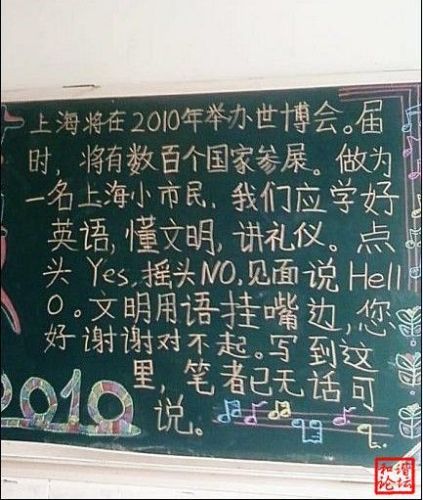 上海将在2010年举办世博会。届
时，将有数百个国家参展。做为
一名上海小市民，我们应学好
英语，懂文明，讲礼仪。点
头Yes，摇头NO，见面说Hell
O。文明用语挂嘴边，您
好谢谢对不起。写到这
里，笔者已无话可
说。
2010
和谐
论坛